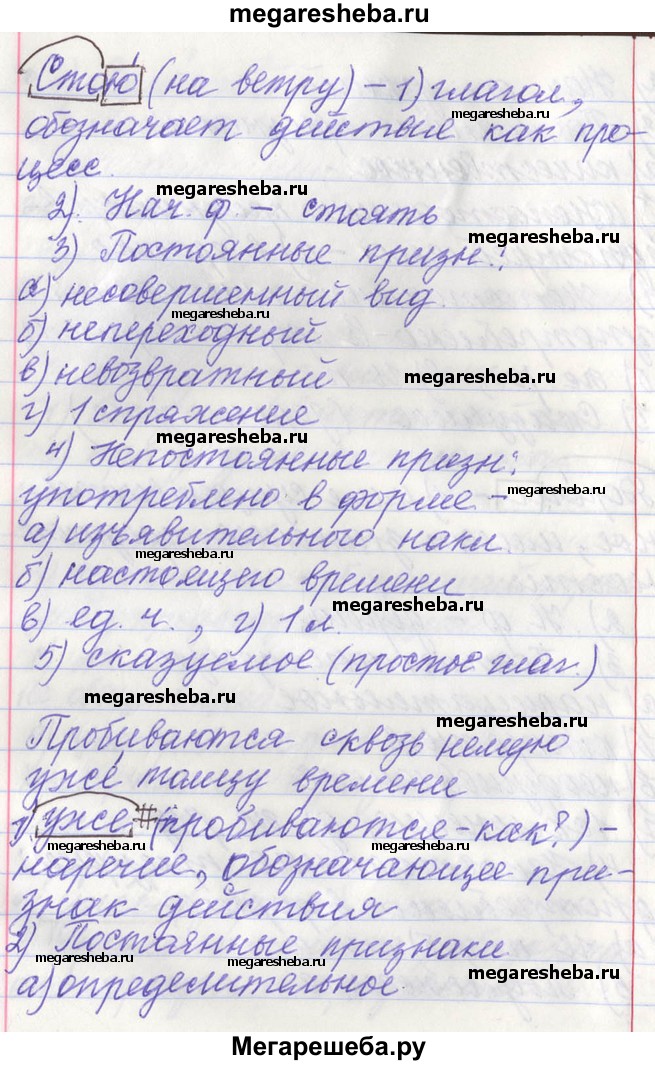 megaresheba.ru
Стою (на ветру) – 1) глагол,
megaresheba.ru
обозначает действие как про-
цесс.
megaresheba.ru
2). Нач. ф. – стоять
megaresheba.ru
3) Постоянные призн.:
а) несовершенный вид.
megaresheba.ru
б) непереходный
в) невозвратный
megaresheba.ru
г) 1 спряжение
megaresheba.ru
4) Непостоянные призн:
употреблено в форме –
megaresheba.ru
а) изъявительного накл.
megaresheba.ru
б) настоящего времени
megaresheba.ru
в) ед. ч., г) 1 л.
5) сказуемое (простое глаг.)
megaresheba.ru
megaresheba.ru
Пробиваются сквозь немую
уже толщу времени
1) уже # (пробиваются – как?) –
megaresheba.ru
наречие, обозначающее при-
знак действия
2) Постоянные признаки
megaresheba.ru
megaresheba.ru
megaresheba.ru
а) определительное.
Мегарешеба.ру